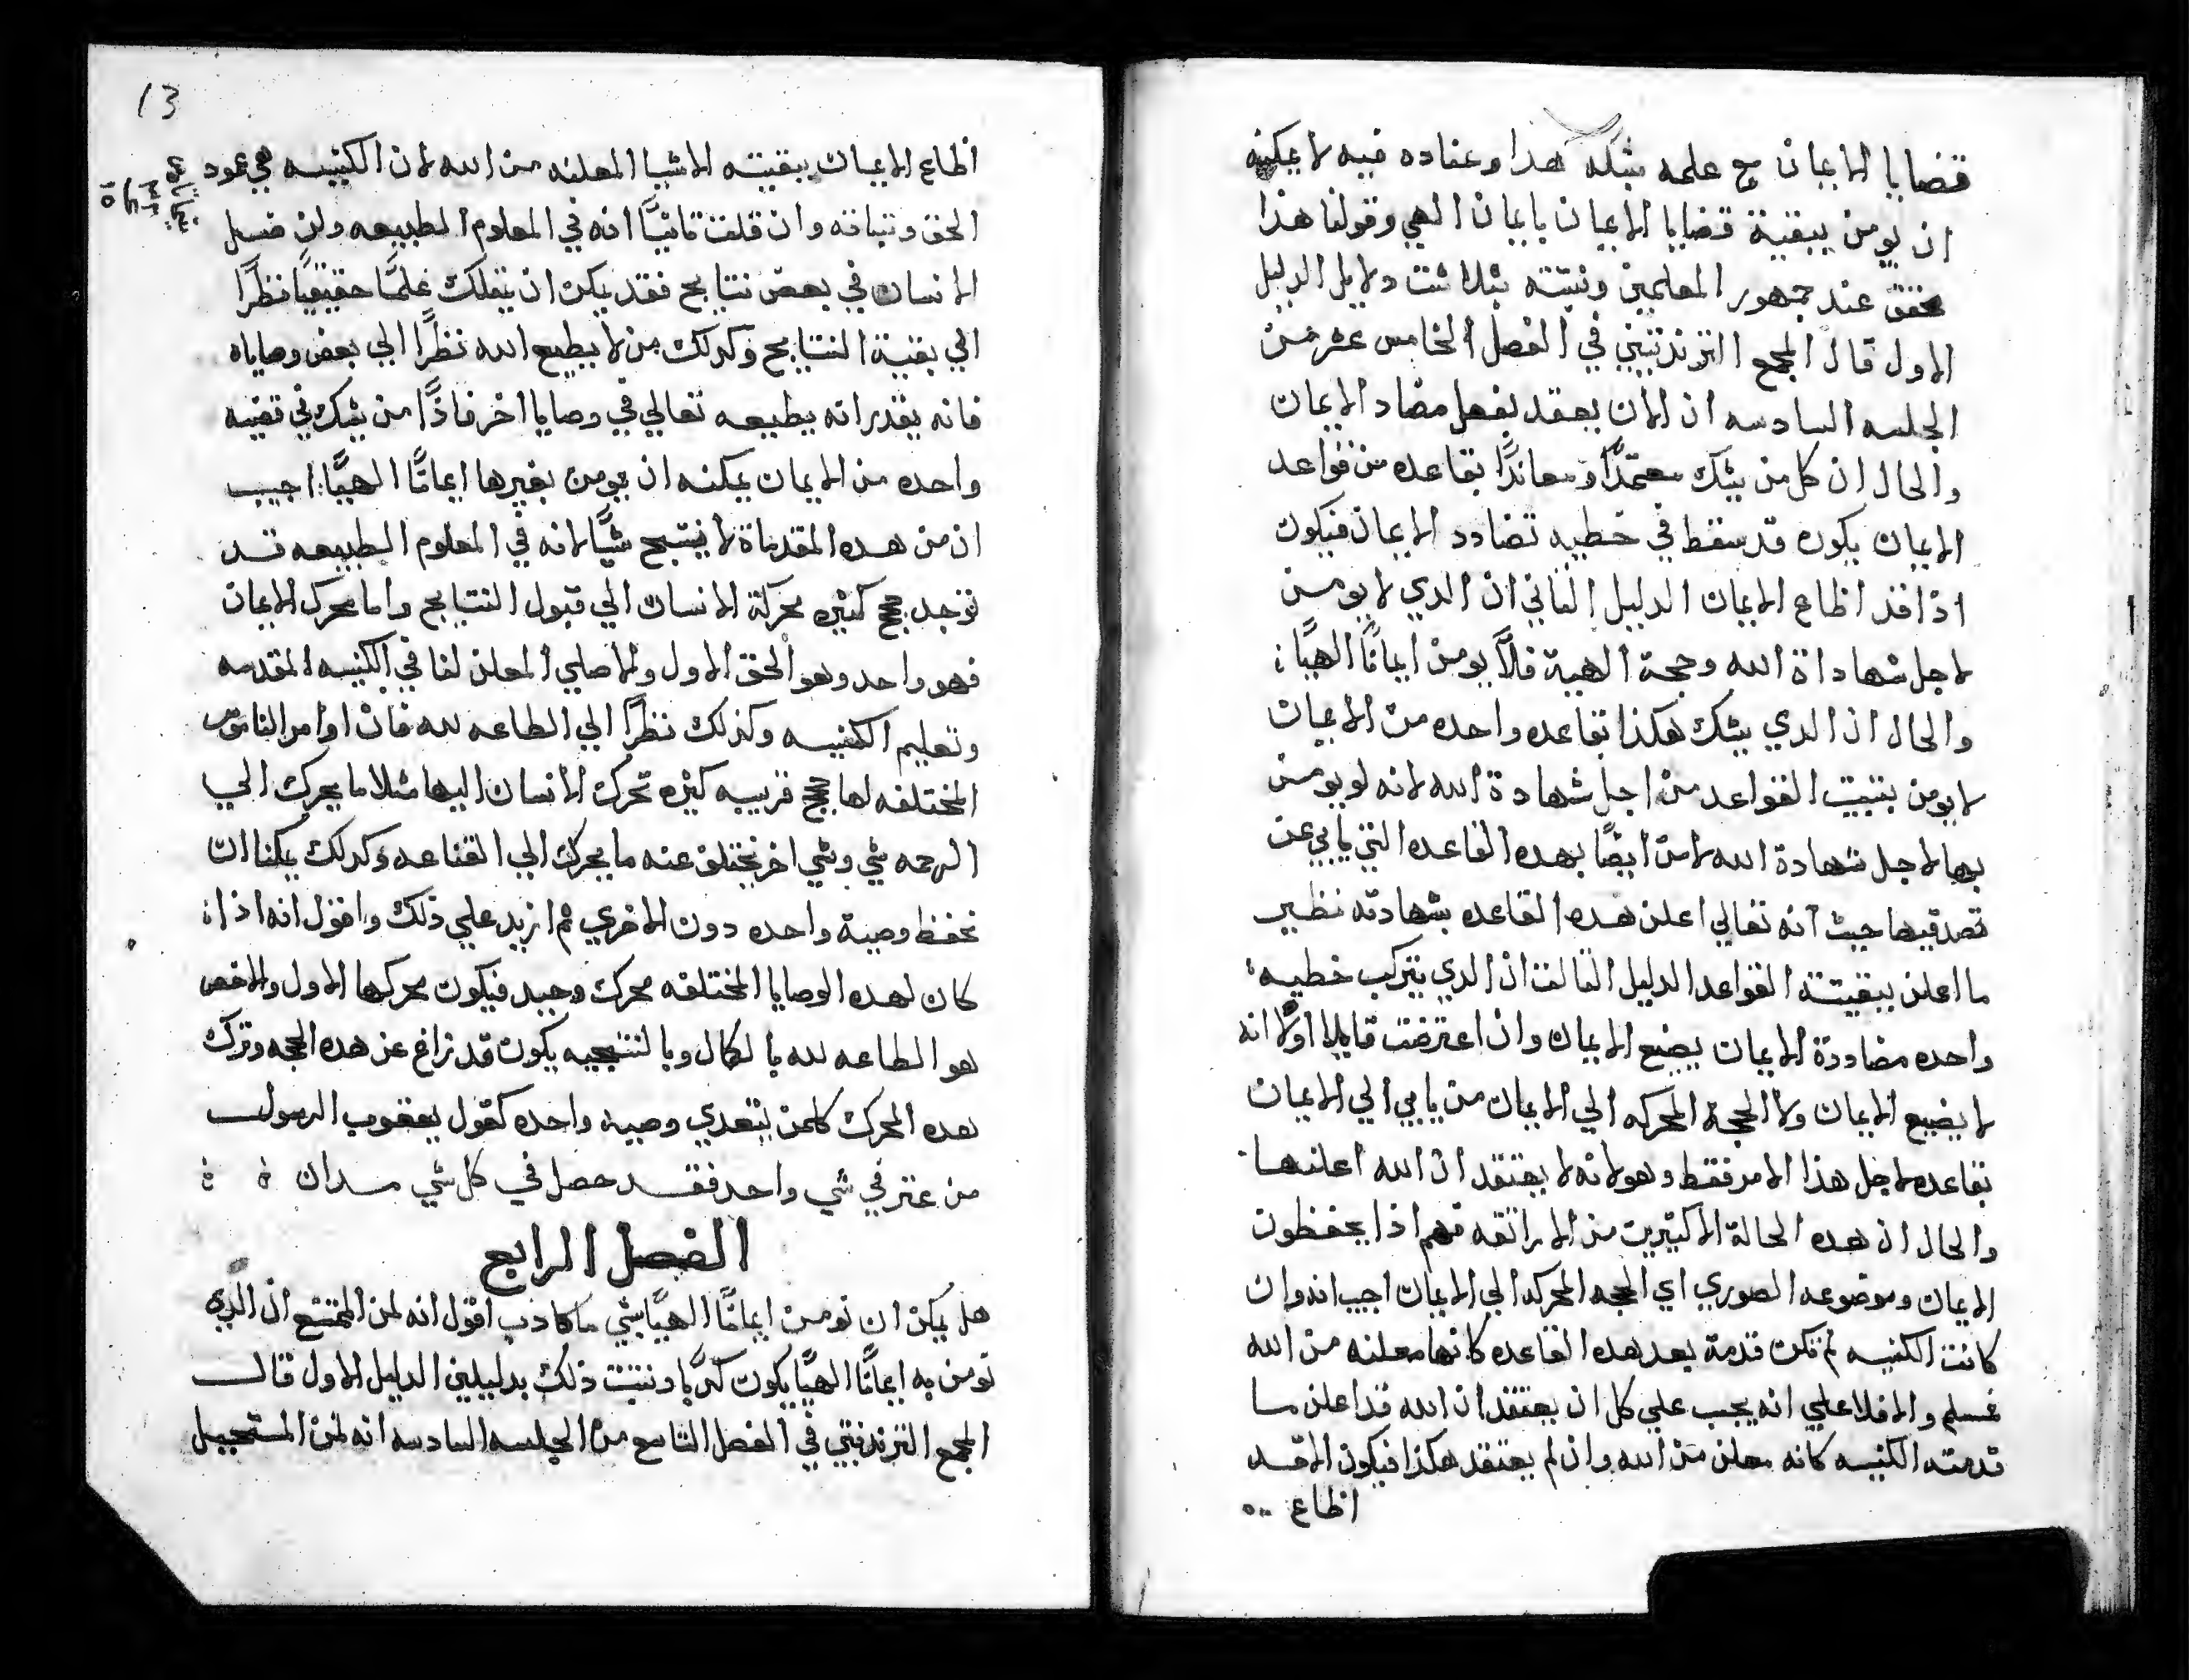 قضايا الايمان مع علمه بشكه هدا وعناده فيه لا يمكنه
ان يومن ببقية قضايا الايمان بايمان الهي وقولنا هذا
محقق عند جمهور المعلمين ونثبته بثلاثت دلايل الدليل
الاول قال المجمع التريدنتيني في الفصل الخامس عشر من
الجلسه السادسه ان الايمان يفقد بفعل مضاد الايمان
والحال ان كل من يشك معتمدًا ومعاندًا بقاعده من قواعد
الايمان يكون قد سقط في خطيه تضادد الايمان فيكون
اذا فقد اظاع الايمان الدليل الثاني ان الدي لا يومن
لاجل شهاداة الله وحجة الهية فلا يومن ايمانًا الهيًا:
والحال ان الدي يشك هكذا بقاعده واحده من الايمان
لا يومن ببقيت القواعد من اجل شهادة الله لانه لو يومن
بها لاجل شهادة الله لامن ايضًا بهده القاعده التي يابي عن
تصديقها حيث انه تعالي اعلن هده القاعده بشهادته نظير
ما اعلن ببقيتة القواعد الدليل الثالث ان الدي يتركب خطيه
واحده مضاددة الايمان يضيع الايمان وان اعترضت قايلا اولًا انه
لا يضيع الايمان ولا الحجة المحركه الي الايمان من يابي الي الايمان
بقاعده لاجل هذا الامر فقط وهو لانه لا يعتقد ان الله اعلنها
والحال ان هده الحالة الاكثيرين من الاراتقه فهم اذا يحفظون
الايمان وموضوعه الصوري اي الحجه المحركه الي الايمان اجيب انه وان
كانت الكنيسه لم تكن قدمة بعد هده القاعده كانها معلنه من الله
فمسلم والا فلا علي انه يجب علي كل ان يعتقد ان الله قد اعلن ما
قدمته الكنيسه كانه معلن من الله وان لم يعتقد هكذا فيكون الاقد
اظاع
13
اظاع الايمان ببقيته الاشيا المعلنه من الله لان الكنيسه هي عمود
الحق وثباته وان قلت ثانيًا انه في العلوم الطبيعه ولين ضل
الانسان في بعض نتايج فقد يمكن ان يتملك علمًا حقيقيًا نظرًا
الي بقية النتايج وكدلك من لا يطيع الله نظرًا الي بعض وصاياه
فانه يقدر انه يطيعه تعالي في وصايا اخر فاذًا من يشك في قضيه
واحده من الايمان يمكنه ان يومن بغيرها ايمانًا الهيًا: اجيب
ان من هده المقدماة لا ينتج شيًا لانه في العلوم الطبيعه قد
توجد حجج كثيره محركة الانسان الي قبول النتايج واما محرك الايمان
فهو واحد وهو الحق الاول والاصلي المعلن لنا في الكنيسه المقدسه
وتعليم الكنيسه وكذلك نظرًا الي الطاعه لله فان اوامر الناموس
المختلفه لها حجج قريبه كثيره تحرك الانسان اليها مثلا ما يحرك الي
الرحمه شي وشي اخر يختلف عنه ما يحرك الي القناعه وكدلك يمكنا ان
نحفظ وصية واحده دون الاخري ثم ازيد علي ذلك واقول انه اذا
كان لهده الوصايا المختلفه محرك وحيد فيكون محركها الاول والاخص
هو الطاعه لله بالكمال وبالنتيجيه يكون قد زاغ عن هده الحجه وترك
هده المحرك كلمن يتعدي وصيه واحده كقول يعقوب الرسول
من عثر في شي واحد فقد حصل في كل شي مدان
الفصل الرابع
هل يمكن ان نومن ايمانًا الهيًا بشي ما كادب اقول انه لمن الممتنع ان الدي
نومن به ايمانًا الهيًا يكون كدبًا ونثبت ذلك بدليلين الدليل الاول قال
المجمع التريدنتيني في الفصل التاسع من الجلسه السادسه انه لمن المستحيل